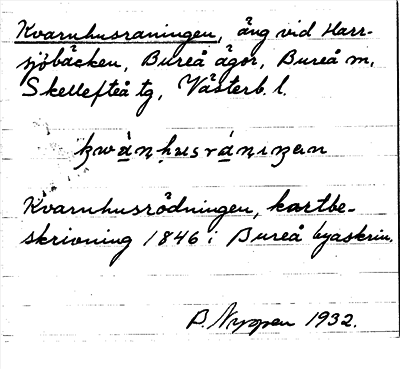 Kvarnhusraningen, äng vid Harr-
sjöbäcken, Bureå ägor, Bureå m,
Skellefteå tg, Västerb. l.
Kvarnhusrödningen, kartbe-
skrivning 1846 i Bureå byaskrin.
B. Nygren 1932.